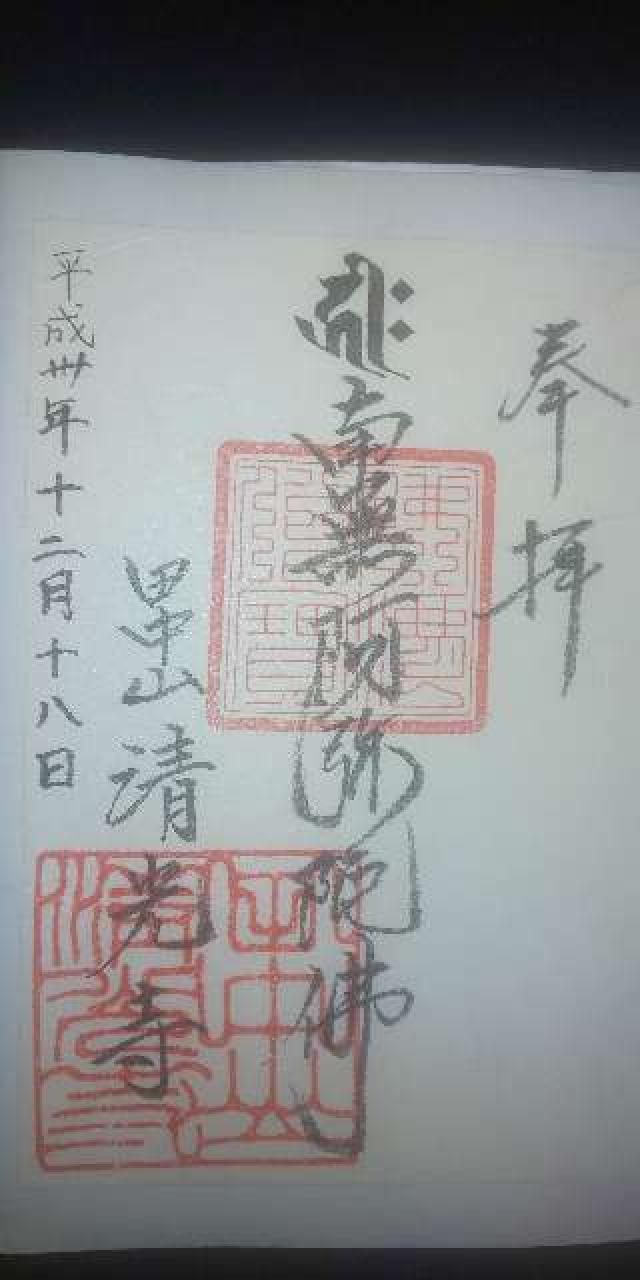 奉拝
南無阿弥陀佛
中山清光寺
平成卅年十二月十八日